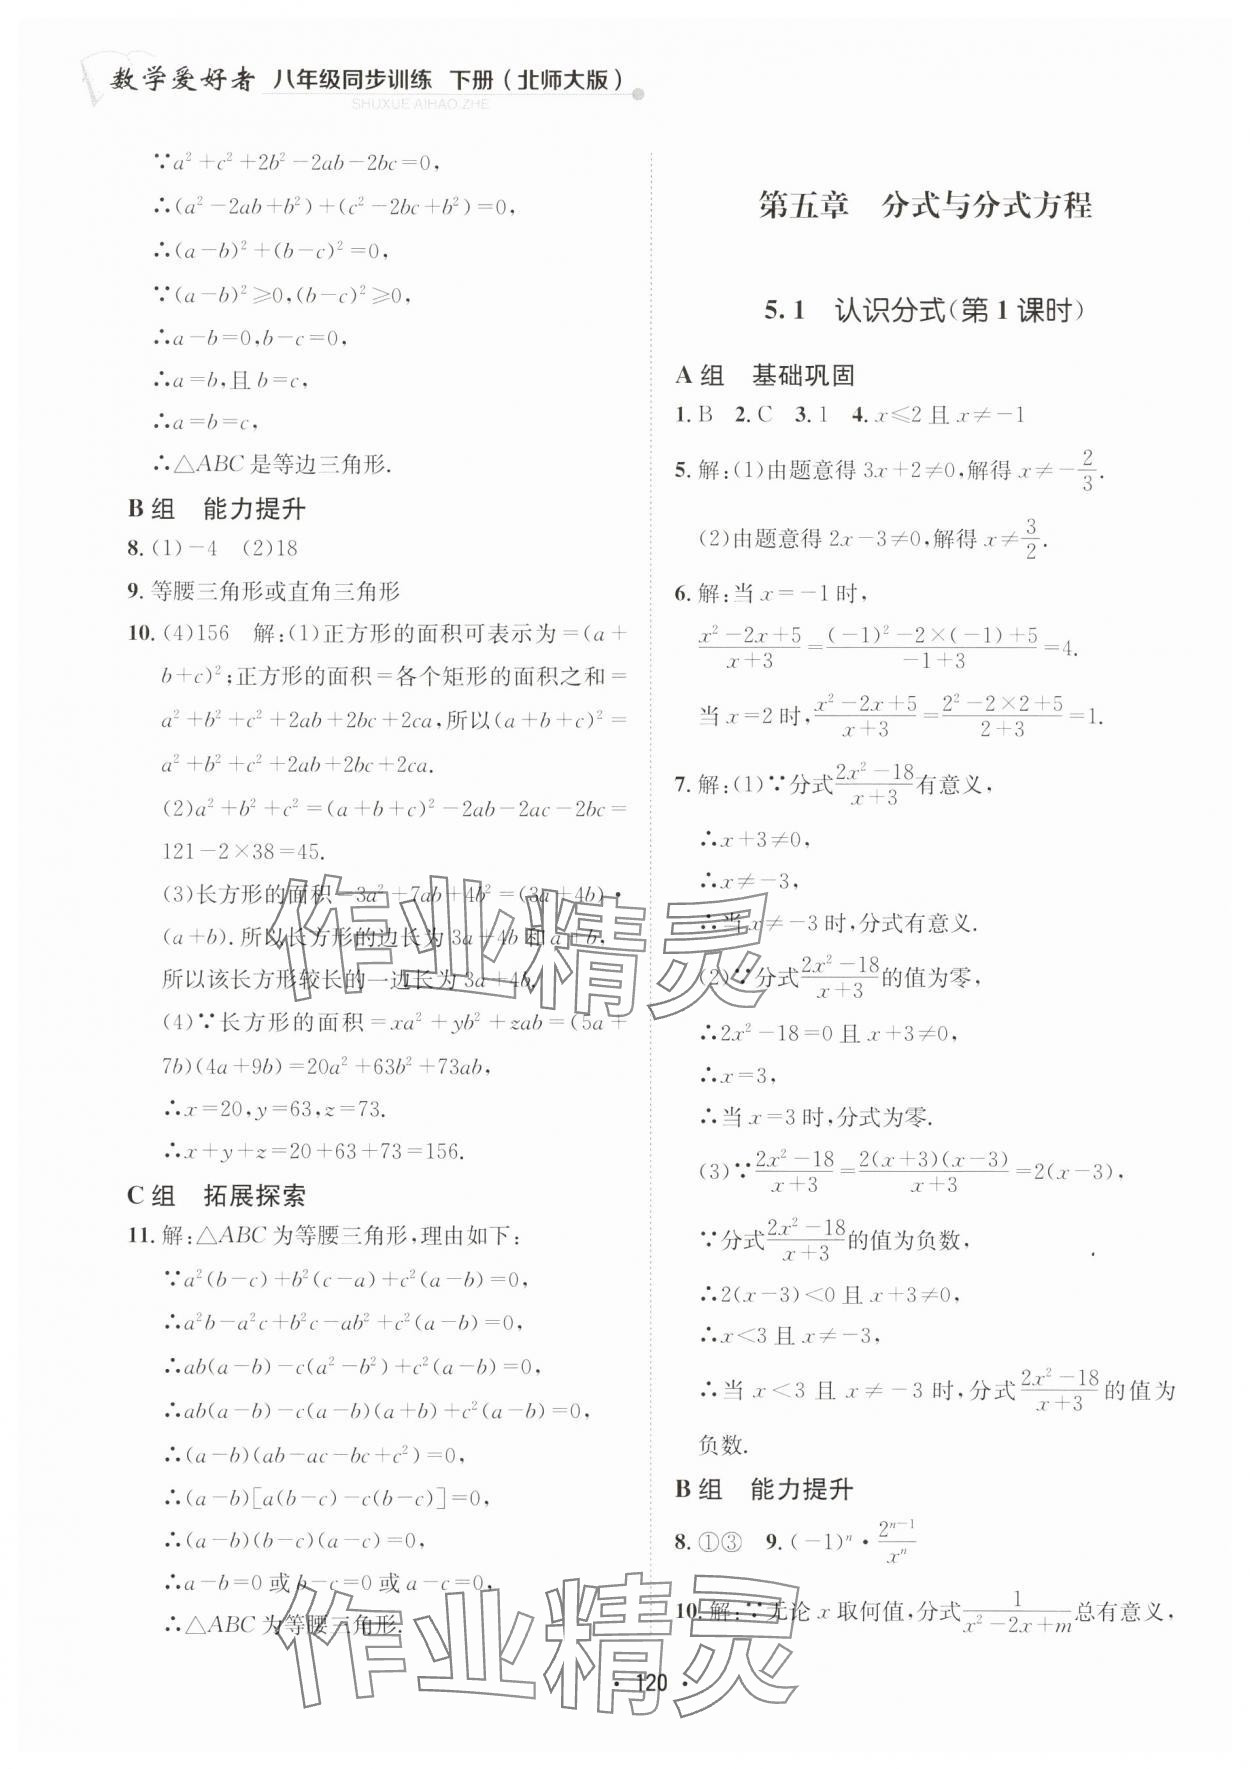 数学爱好者 八年级同步训练 下册(北师大版)
SHUXUE AIHAO ZHE
∵a²+c²+2b²-2ab-2bc=0,
∴(a²-2ab+b²)+(c²-2bc+b²)=0,
∴(a-b)²+(b-c)²=0,
∵(a-b)²≥0,(b-c)²≥0,
∴a-b=0,b-c=0,
∴a=b,且b=c,
∴a=b=c,
∴△ABC是等边三角形.
B组 能力提升
8.(1)-4 (2)18
9.等腰三角形或直角三角形
10.(4)156 解:(1)正方形的面积可表示为=(a+
b+c)²;正方形的面积=各个矩形的面积之和=
a²+b²+c²+2ab+2bc+2ca,所以(a+b+c)²=
a²+b²+c²+2ab+2bc+2ca.
(2)a²+b²+c²=(a+b+c)²-2ab-2ac-2bc=
121-2×38=45.
(3)长方形的面积=3a²+7ab+4b²=(3a+4b)·
(a+b).所以长方形的边长为3a+4b和a+b,
所以该长方形较长的一边长为3a+4b.
(4)∵长方形的面积=xa²+yb²+zab=(5a+
7b)(4a+9b)=20a²+63b²+73ab,
∴x=20,y=63,z=73.
∴x+y+z=20+63+73=156.
C组 拓展探索
11.解:△ABC为等腰三角形,理由如下:
∵a²(b-c)+b²(c-a)+c²(a-b)=0,
∴a²b-a²c+b²c-ab²+c²(a-b)=0,
∴ab(a-b)-c(a²-b²)+c²(a-b)=0,
∴ab(a-b)-c(a-b)(a+b)+c²(a-b)=0,
∴(a-b)(ab-ac-bc+c²)=0,
∴(a-b)[a(b-c)-c(b-c)]=0,
∴(a-b)(b-c)(a-c)=0,
∴a-b=0或b-c=0或a-c=0,
∴△ABC为等腰三角形.
第五章 分式与分式方程
5.1 认识分式(第1课时)
A组 基础巩固
1.B 2.C 3.1 4.x≤2且x≠-1
5.解:(1)由题意得3x+2≠0,解得x≠-2/3.
(2)由题意得2x-3≠0,解得x≠3/2.
6.解:当x=-1时,
(x²-2x+5)/(x+3)=((-1)²-2×(-1)+5)/(-1+3)=4.
当x=2时,(x²-2x+5)/(x+3)=(2²-2×2+5)/(2+3)=1.
7.解:(1)∵分式(2x²-18)/(x+3)有意义,
∴x+3≠0,
∴x≠-3,
∴当x≠-3时,分式有意义.
(2)∵分式(2x²-18)/(x+3)的值为零,
∴2x²-18=0且x+3≠0,
∴x=3,
∴当x=3时,分式为零.
(3)∵(2x²-18)/(x+3)=2(x+3)(x-3)/(x+3)=2(x-3),
∵分式(2x²-18)/(x+3)的值为负数,
∴2(x-3)<0且x+3≠0,
∴x<3且x≠-3,
∴当x<3且x≠-3时,分式(2x²-18)/(x+3)的值为
负数.
B组 能力提升
8.①③ 9.(-1)ⁿ·2ⁿ⁻¹/xⁿ
10.解:∵无论x取何值,分式1/(x²-2x+m)总有意义,
·120·
作业精灵
作业精灵